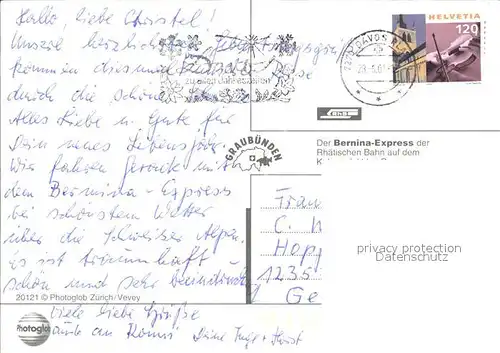 Hallo, liebe Christel!
Unsere herzlichsten Geburtstagsgrüße
kommen diesmal
durch die schöne
Alles Liebe u. Gute für
Dein neues Lebensjahr.
Wir fahren gerade mit
dem Bernina-Express
bei schönstem Wetter
über die Schweizer Alpen.
Es ist traumhaft -
schön und sehr beeindruckend
Viele liebe Grüße
auch an Romi Deine Inge + Horst
7260 DAVOS
HELVETIA
120
GRAUBÜNDEN
Der Bernina-Express der
Rhätischen Bahn auf dem
Frau
C.
Hopp
1235
privacy protection
Datenschutz
20121 © Photoglob Zürich/Vevey
Photoglob